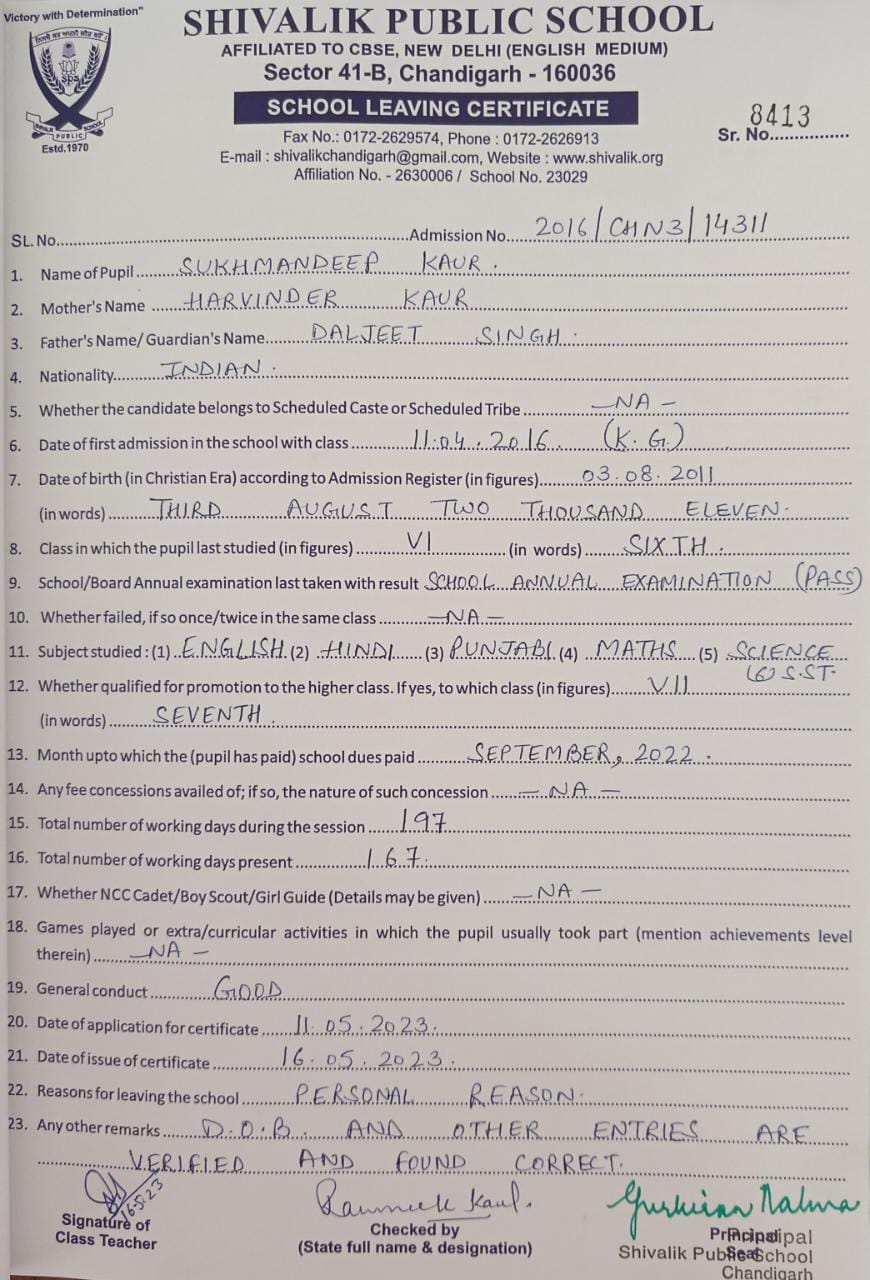 Victory with Determination"
SHIVALIK PUBLIC SCHOOL
AFFILIATED TO CBSE, NEW DELHI (ENGLISH MEDIUM)
Sector 41-B, Chandigarh - 160036
SPS
SHIVALIK PUBLIC SCHOOL
Estd.1970
SCHOOL LEAVING CERTIFICATE
Fax No.: 0172-2629574, Phone : 0172-2626913
E-mail : shivalikchandigarh@gmail.com, Website : www.shivalik.org
Affiliation No. - 2630006 / School No. 23029
Sr. No. 8413
SL. No. Admission No. 2016/CHN3/14311
1. Name of Pupil SUKHMANDEEP KAUR.
2. Mother's Name HARVINDER KAUR
3. Father's Name/ Guardian's Name DALJEET SINGH.
4. Nationality INDIAN.
5. Whether the candidate belongs to Scheduled Caste or Scheduled Tribe —NA—
6. Date of first admission in the school with class 11.04.2016. (K.G.)
7. Date of birth (in Christian Era) according to Admission Register (in figures) 03.08.2011
(in words) THIRD AUGUST TWO THOUSAND ELEVEN.
8. Class in which the pupil last studied (in figures) VI (in words) SIXTH.
9. School/Board Annual examination last taken with result SCHOOL ANNUAL EXAMINATION (PASS)
10. Whether failed, if so once/twice in the same class —NA—
11. Subject studied : (1) ENGLISH (2) HINDI (3) PUNJABI (4) MATHS (5) SCIENCE
(6) S.ST.
12. Whether qualified for promotion to the higher class. If yes, to which class (in figures) VII
(in words) SEVENTH.
13. Month upto which the (pupil has paid) school dues paid SEPTEMBER, 2022.
14. Any fee concessions availed of; if so, the nature of such concession —NA—
15. Total number of working days during the session 197
16. Total number of working days present 167.
17. Whether NCC Cadet/Boy Scout/Girl Guide (Details may be given) —NA—
18. Games played or extra/curricular activities in which the pupil usually took part (mention achievements level
therein) —NA—
19. General conduct GOOD
20. Date of application for certificate 11.05.2023.
21. Date of issue of certificate 16.05.2023.
22. Reasons for leaving the school PERSONAL REASON.
23. Any other remarks D.O.B. AND OTHER ENTRIES ARE
VERIFIED AND FOUND CORRECT.
16-5-23
Signature of
Class Teacher
Kaul.
Checked by
(State full name & designation)
Principal
Seal
Principal
Shivalik Public School
Chandigarh